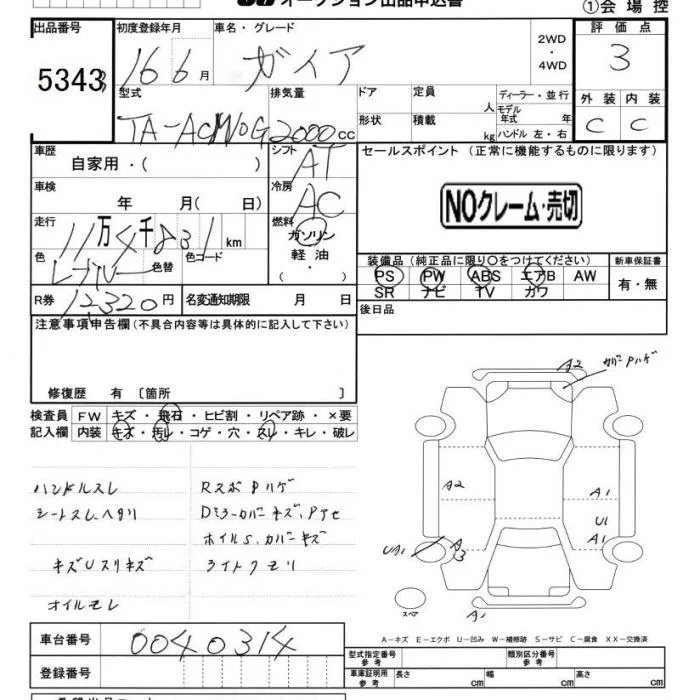 オークション出品申込書
①会場控
出品番号
5343
初度登録年月
16 6月
車名・グレード
ガイア
2WD
・
4WD
評価点
3
型式
TA-ACM10G
排気量
2000cc
ドア
形状
定員
人
積載
kg
ディーラー・並行
モデル年式 年
ハンドル 左・右
外装
内装
C
C
車歴
自家用・( )
シフト
AT
車検
年 月( 日)
冷房
AC
走行
11万4千831km
燃料
ガソリン
軽油
・( )
色
色替
色コード
R券
12320円
名変通知期限 月 日
セールスポイント (正常に機能するものに限ります)
NOクレーム・売切
装備品(純正品に限り○をつけてください)
PS PW ABS エアB AW
SR ナビ TV カワ
新車保証書
有・無
後日品
注意事項申告欄(不具合内容等は具体的に記入して下さい)
修復歴 有 〔箇所 〕
検査員
記入欄
FW キズ・飛石・ヒビ割・リペア跡・×要
内装 キズ・汚レ・コゲ・穴・スレ・キレ・破レ
ハンドルスレ
シートスレ、ヘタリ
キズUスリキズ
オイルモレ
RスポPハゲ
Dミラーカバーキズ、Pアセ
ホイルS、カバーキズ
ライトクモリ
A2
カバーPハゲ
A2
A1
U1
A1
A3
A1
スペア
A-キズ E-エクボ U-凹み W-補修跡 S-サビ C-腐食 XX-交換済
車台番号
0040314
登録番号
型式指定番号
参考
類別区分番号
参考
車庫証明用
参考
長さ cm
幅 cm
高さ cm